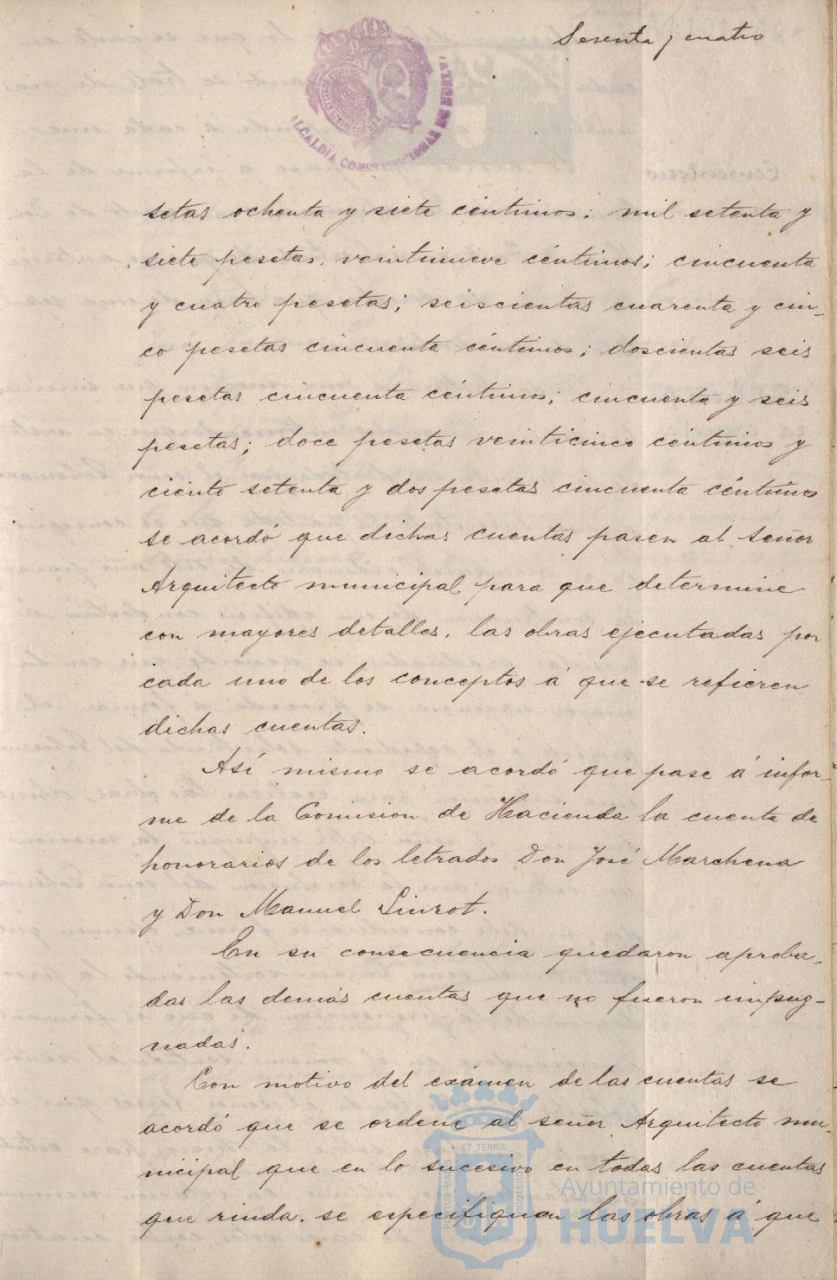 Sesenta y cuatro
ALCALDIA CONSTITUCIONAL DE HUELVA
setas ochenta y siete céntimos; mil setenta y
siete pesetas veintinueve céntimos; cincuenta
y cuatro pesetas; seiscientas cuarenta y cin-
co pesetas cincuenta céntimos; doscientas seis
pesetas cincuenta céntimos; cincuenta y seis
pesetas; doce pesetas veinticinco centimos y
ciento setenta y dos pesetas cincuenta céntimos
se acordó que dichas cuentas pasen al señor
Arquitecto municipal para que determine
con mayores detalles, las obras ejecutadas por
cada uno de los conceptos á que se refieren
dichas cuentas.
Así mismo se acordó que pase á infor-
me de la Comision de Hacienda la cuenta de
honorarios de los letrados Don José Marchena
y Don Manuel Siurot.
En su consecuencia quedaron aproba-
das las demás cuentas que no fueron impug-
nadas.
Con motivo del exámen de las cuentas se
acordó que se ordene al señor Arquitecto mu-
nicipal que en lo sucesivo en todas las cuentas
que rinda se especifiquen las obras á que
Ayuntamiento de
HUELVA